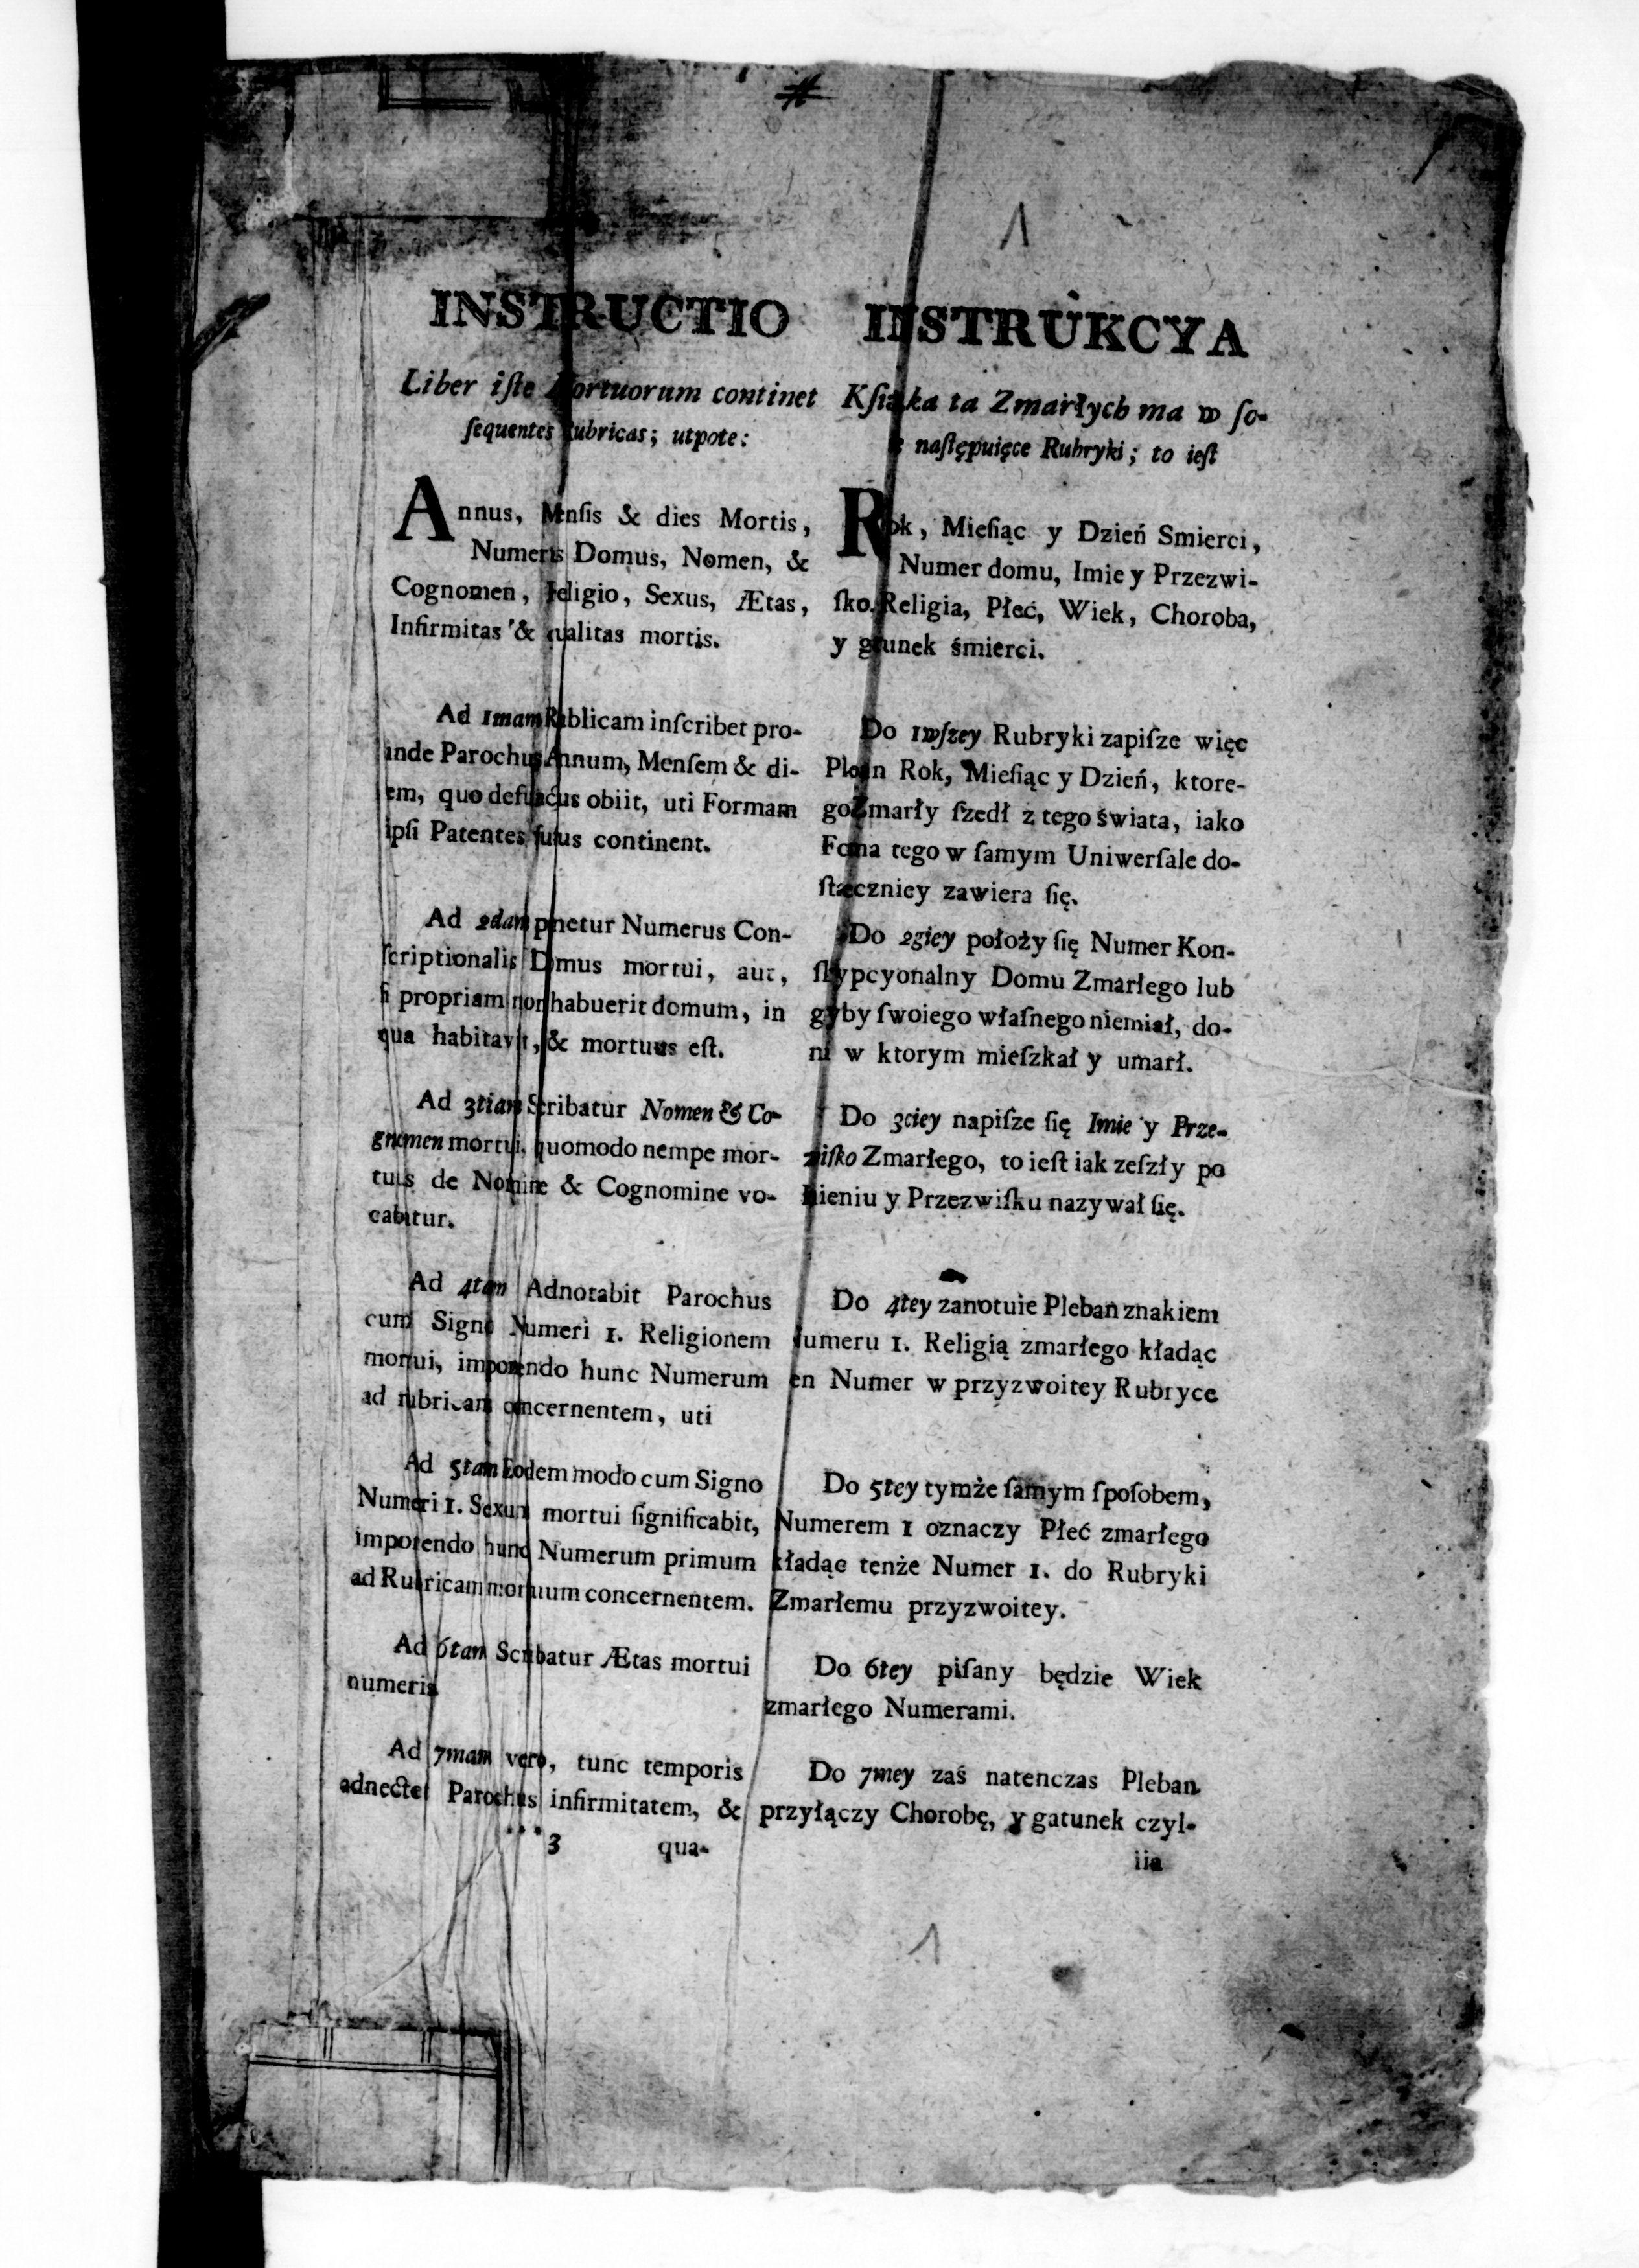 #
1
INSTRUCTIO
Liber iſte Mortuorum continet
ſequentes Rubricas; utpote:
Annus, Menſis & dies Mortis,
Numerus Domus, Nomen, &
Cognomen, Religio, Sexus, Ætas,
Infirmitas & qualitas mortis.
Ad 1mam Rublicam inſcribet pro-
inde Parochus Annum, Menſem & di-
em, quo defunctus obiit, uti Formam
ipſi Patentes continent.
Ad 2dam ponetur Numerus Con-
ſcriptionalis Domus mortui, aut,
ſi propriam non habuerit domum, in
qua habitavit, & mortuus eſt.
Ad 3tiam Scribatur Nomen & Co-
gnomen mortui, quomodo nempe mor-
tuus de Nomine & Cognomine vo-
cabitur.
Ad 4tam Adnotabit Parochus
cum Signo Numeri 1. Religionem
mortui, imponendo hunc Numerum
ad rubricam concernentem, uti
Ad 5tam Eodem modo cum Signo
Numeri 1. Sexum mortui ſignificabit,
imponendo hunc Numerum primum
ad Rubricam mortuum concernentem.
Ad 6tam Scribatur Ætas mortui
numeris
Ad 7mam vero, tunc temporis
adnectet Parochus infirmitatem, &
***3 qua-
INSTRUKCYA
Kſiąſzka ta Zmarłych ma w ſo-
naſtępuięce Rubryki; to ieſt
Rok, Mieſiąc y Dzień Smierci,
Numer domu, Imie y Przezwi-
ſko, Religia, Płeć, Wiek, Choroba,
y gatunek śmierci.
Do 1wſzey Rubryki zapiſze więc
Pleban Rok, Mieſiąc y Dzień, ktore-
go Zmarły ſzedł z tego świata, iako
Forma tego w ſamym Uniwerſale do-
ſtateczniey zawiera ſię.
Do 2giey położy ſię Numer Kon-
ſkrypcyonalny Domu Zmarłego lub
gdyby ſwoiego własnego niemiał, do-
mu w ktorym mieſzkał y umarł.
Do 3ciey napiſze ſię Imie y Prze-
zwiſko Zmarłego, to ieſt iak zeſzły po
Imieniu y Przezwiſku nazywał ſię.
Do 4tey zanotuie Pleban znakiem
Numeru 1. Religią zmarłego kładąc
ten Numer w przyzwoitey Rubryce
Do 5tey tymże ſamym ſpoſobem,
Numerem 1 oznaczy Płeć zmarłego
kładąc tenże Numer 1. do Rubryki
Zmarłemu przyzwoitey.
Do 6tey piſany będzie Wiek
zmarłego Numerami.
Do 7mey zaś natenczas Pleban
przyłączy Chorobę, y gatunek czyl-
iia
1